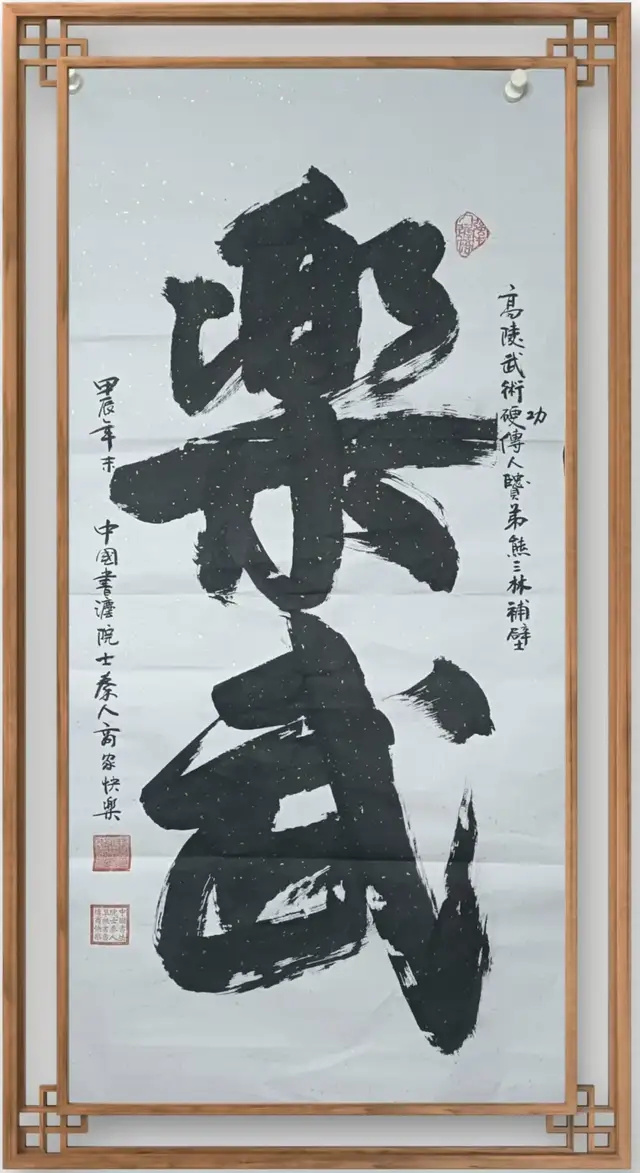 高陵武術硬功傳人賢弟熊三林補壁
樂武
甲辰年末 中國書灋院士秦人商家快樂